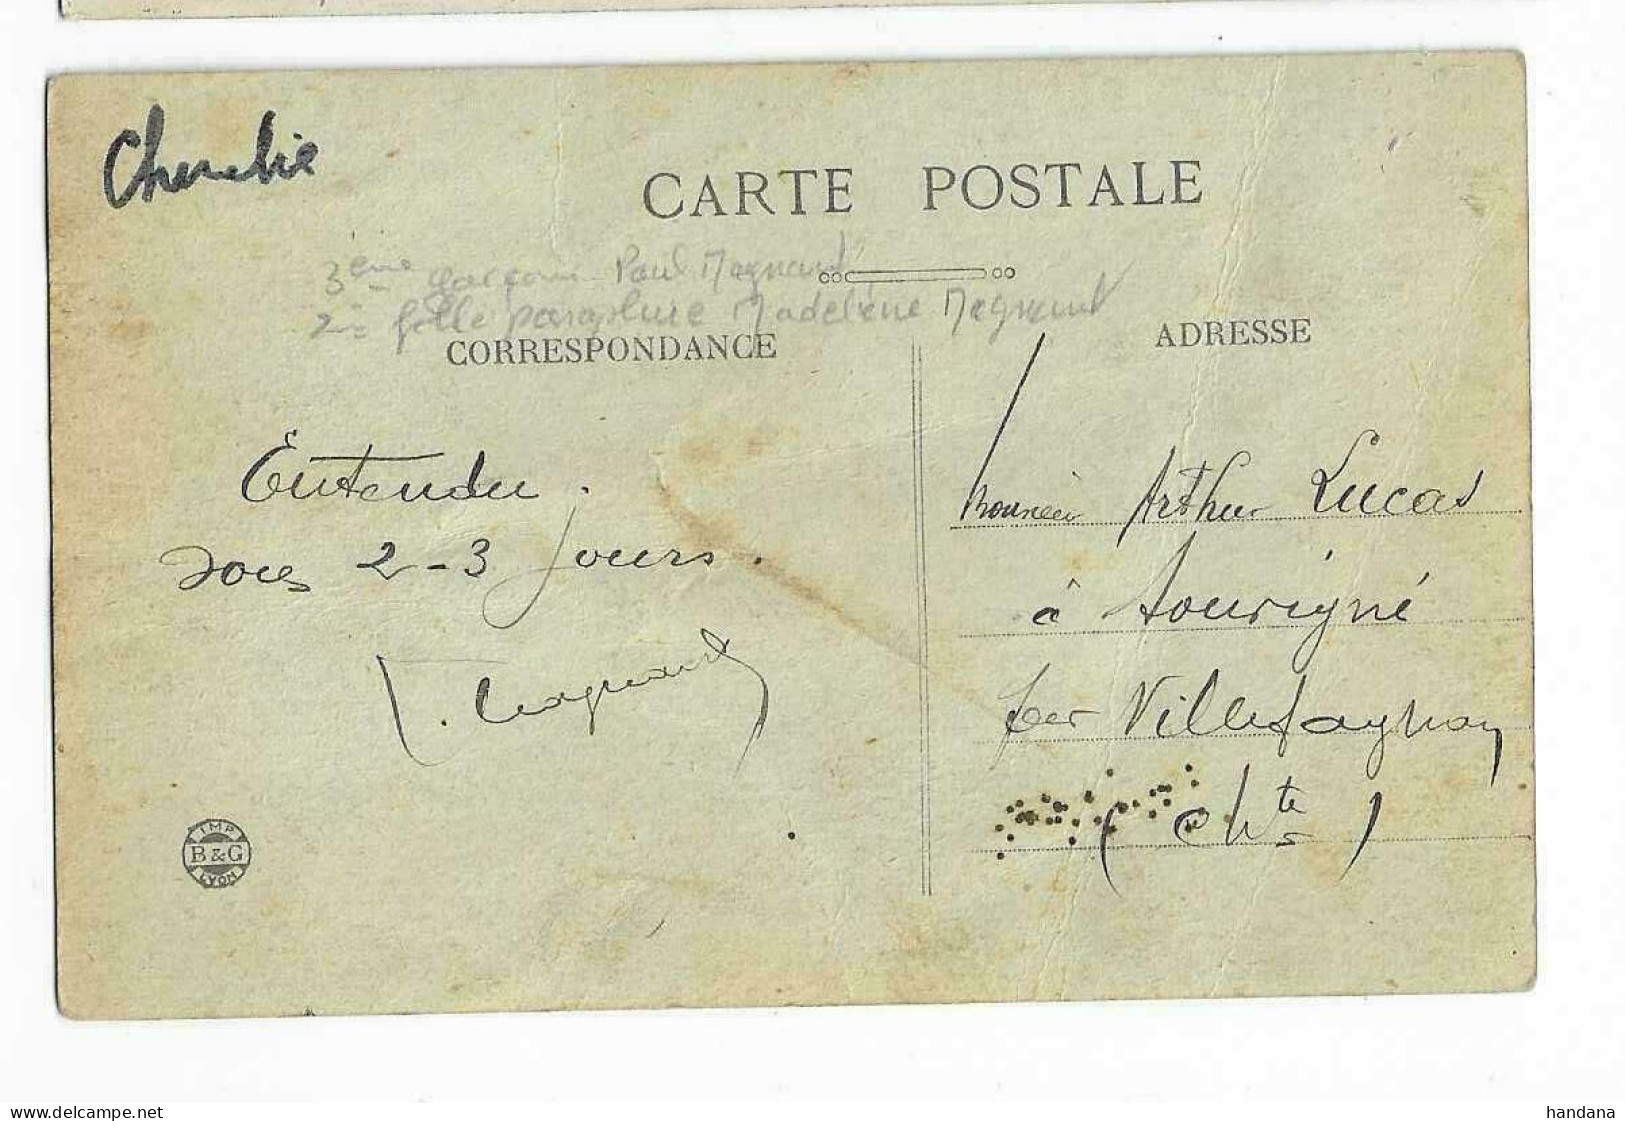 CARTE POSTALE
3ème garçon Paul Magnant
2e fille parapluie Madeleine Magnant
CORRESPONDANCE
ADRESSE
Entendu.
sous 2-3 jours.
Magnant
Arthur Lucas
à Souvigné
par Villefagnan
(Chte)
IMP.
B&G
LYON
www.delcampe.net
handana